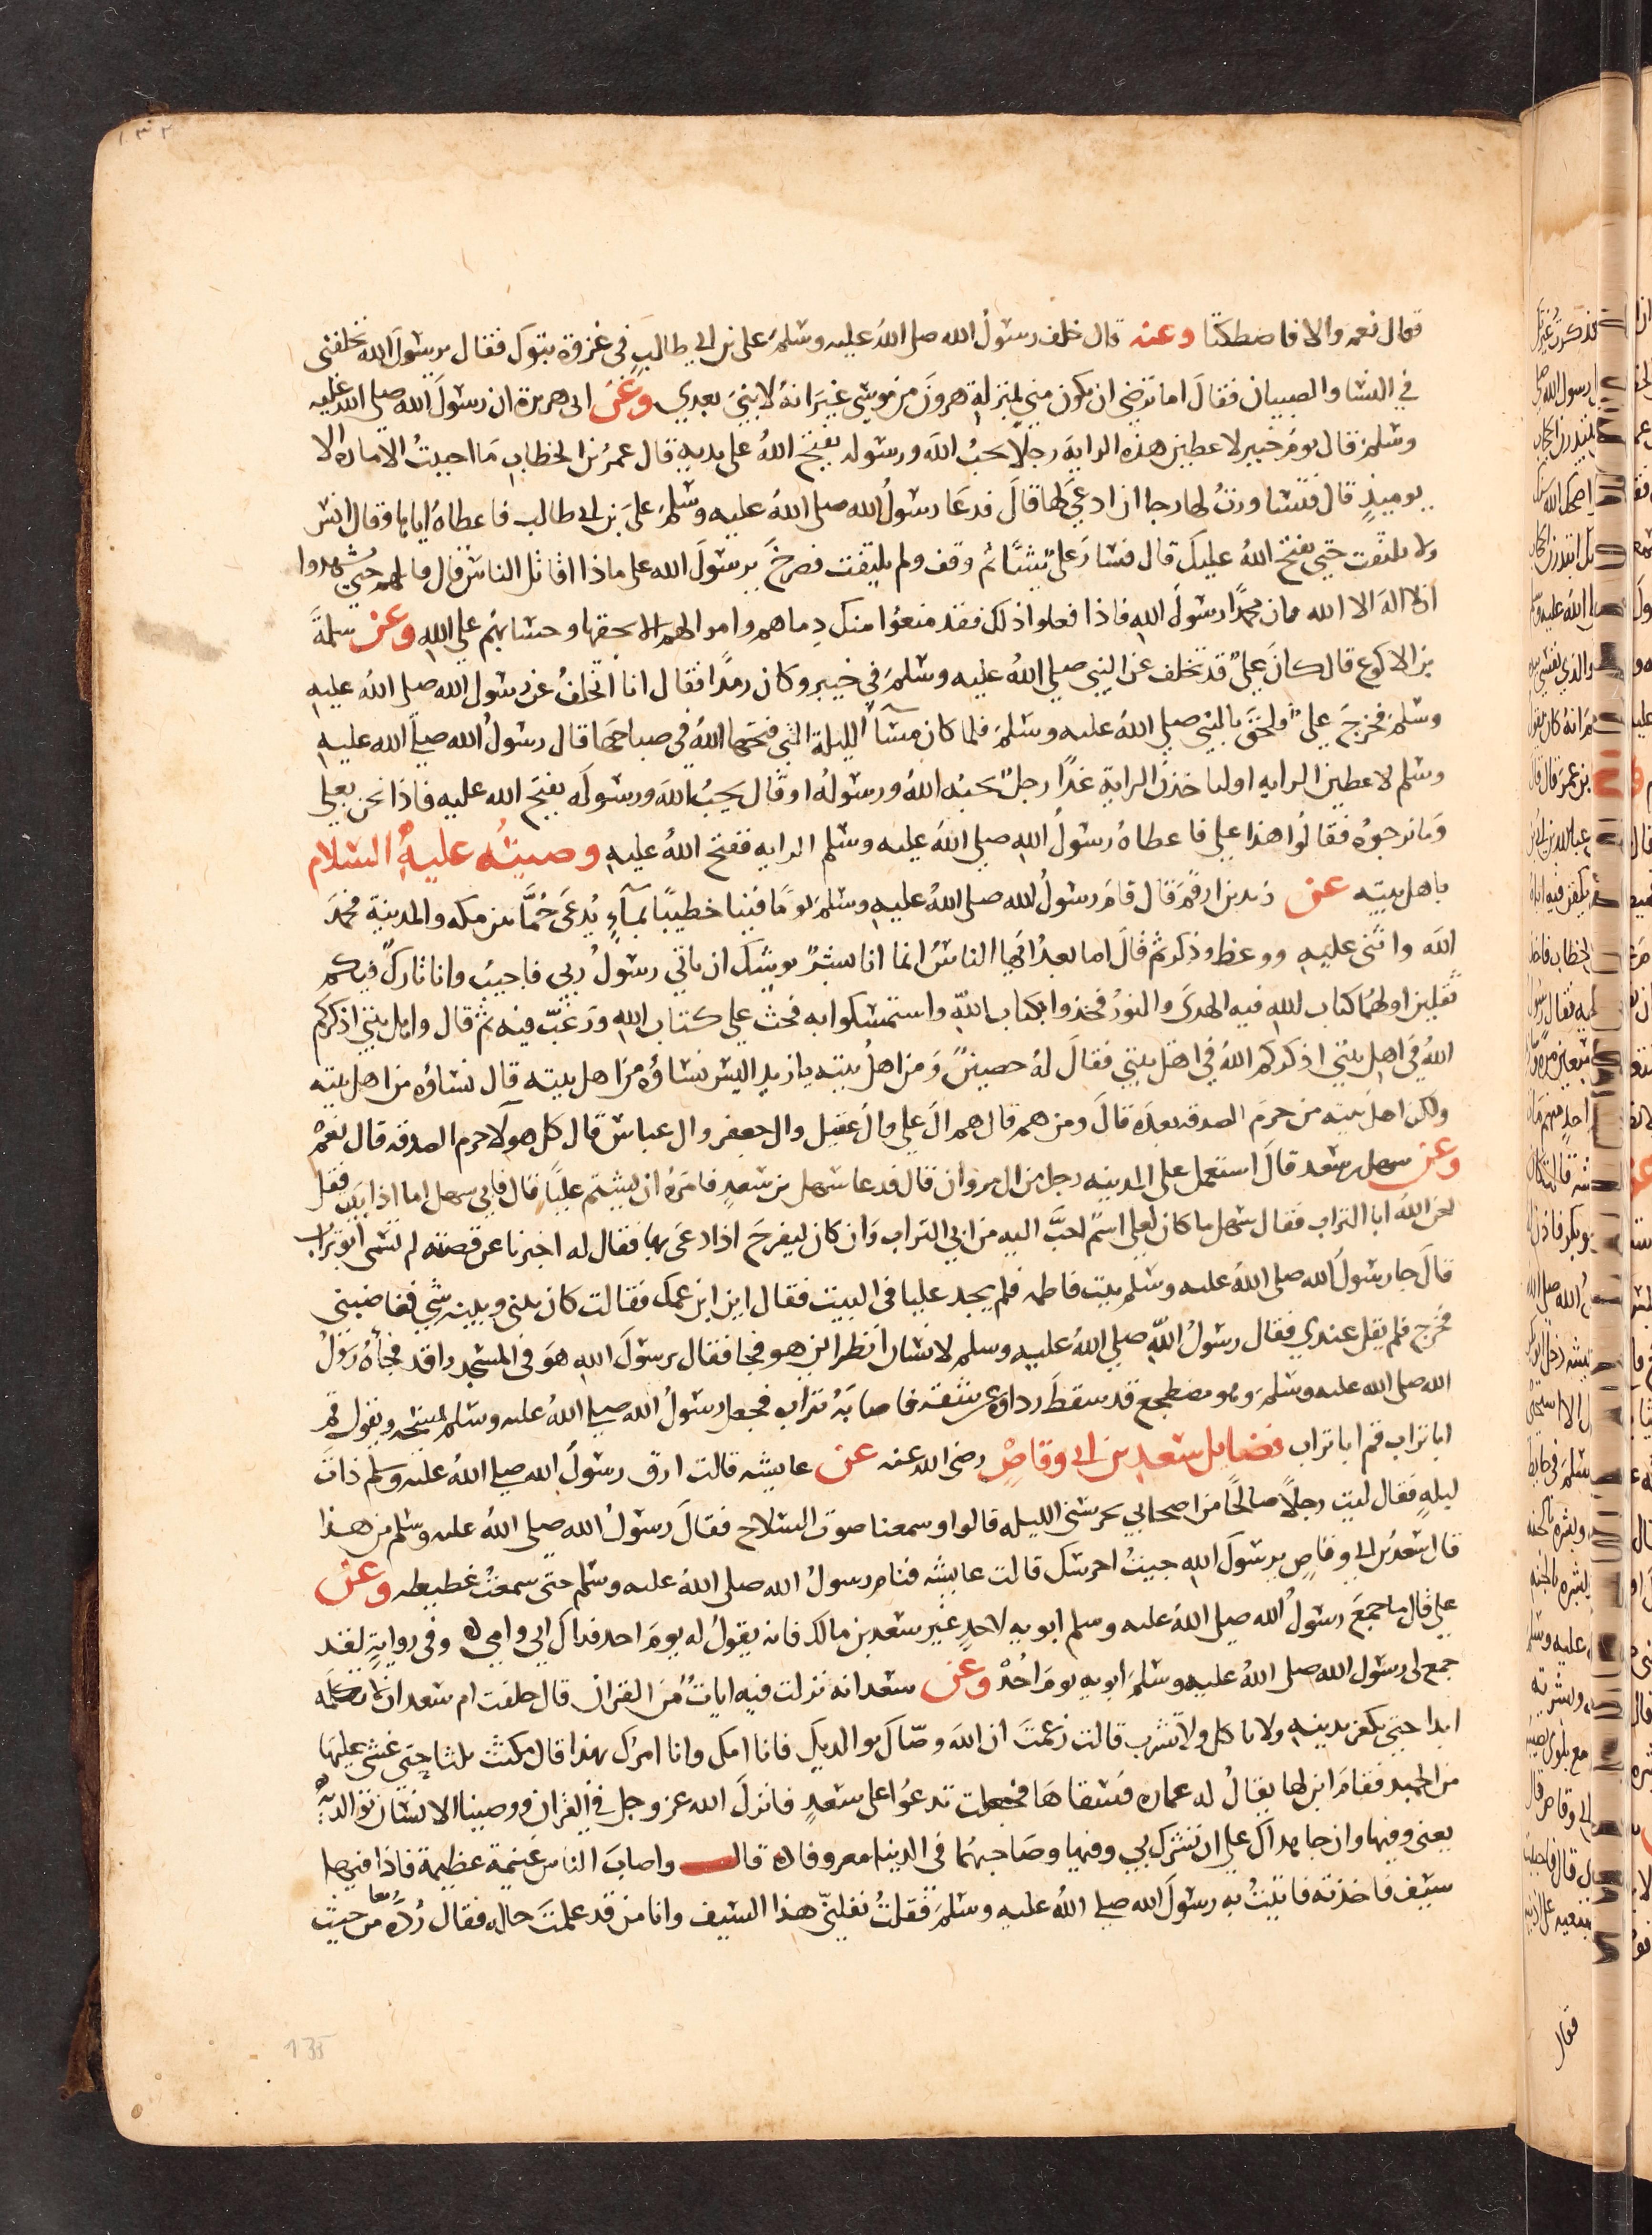 ١٣٣
فقال نعم والا فاصطكتا وعنه قال خلف رسول الله صلى الله عليه وسلم على بن ابي طالب في غزوة تبوك فقال يرسول الله تخلفني
في النسا والصبيان فقال اما ترضى ان تكون مني بمنزلة هرون من موسى غير انه لا نبي بعدي وعن ابي هريرة ان رسول الله صلى الله عليه
وسلم قال يوم خيبر لاعطين هذه الراية رجلا يحب الله ورسوله يفتح الله على يديه قال عمر بن الخطاب ما احببت الاماره الا
يوميذ قال فتساورت لها رجا ان ادعى لها قال فدعا رسول الله صلى الله عليه وسلم على بن ابي طالب فاعطاه اياها وقال امش
ولا تلتفت حتى يفتح الله عليك قال فسار على شيا ثم وقف ولم يلتفت فصرخ يرسول الله على ماذا اقاتل الناس قال قاتلهم حتى يشهدوا
ان لا اله الا الله وان محمدا رسول الله فاذا فعلوا ذلك فقد منعوا منك دماهم واموالهم الا بحقها وحسابهم على الله وعن سلمة
بن الاكوع قال كان علي قد تخلف عن النبي صلى الله عليه وسلم في خيبر وكان رمدا فقال انا اتخلف عن رسول الله صلى الله عليه
وسلم فخرج علي فلحق بالنبي صلى الله عليه وسلم فلما كان مسآ الليلة التي فتحها الله في صباحها قال رسول الله صلى الله عليه
وسلم لاعطين الرايه او لياخذن الراية غدا رجل يحبه الله ورسوله او قال يحب الله ورسوله يفتح الله عليه فاذا نحن بعلي
وما نرجوه فقالوا هذا علي فاعطاه رسول الله صلى الله عليه وسلم الرايه ففتح الله عليه وصيته عليه السلام
باهل بيته عن زيد بن ارقم قال قام رسول الله صلى الله عليه وسلم يوما فينا خطيبا بمآء يدعى خما بين مكه والمدينة فحمد
الله واثنى عليه ووعظ وذكر ثم قال اما بعد ايها الناس انما انا بشر يوشك ان ياتي رسول ربي فاجيب وانا تارك فيكم
ثقلين اولهما كتاب الله فيه الهدى والنور فخذوا بكتاب الله واستمسكوا به فحث على كتاب الله ورغب فيه ثم قال واهل بيتي اذكركم
الله في اهل بيتي اذكركم الله في اهل بيتي فقال له حصين ومن اهل بيته يا زيد اليس نساؤه من اهل بيته قال نساؤه من اهل بيته
ولكن اهل بيته من حرم الصدقه بعده قال ومن هم قال هم ال علي وال عقيل وال جعفر وال عباس قال كل هولآ حرم الصدقه قال نعم
وعن سهل بن سعد قال استعمل على المدينه رجل من ال مروان قال فدعا سهل بن سعد فامره ان يشتم عليا قال فابى سهل اما اذ ابيت فقل
لعن الله ابا التراب فقال سهل ما كان لعلي اسم احب اليه من ابي التراب وان كان ليفرح اذا دعى بها فقال له اخبرنا عن قصته لم سمي ابو تراب
قال جا رسول الله صلى الله عليه وسلم بيت فاطمه فلم يجد عليا في البيت فقال اين ابن عمك فقالت كان بيني وبينه شي فغاضبني
فخرج فلم يقل عندي فقال رسول الله صلى الله عليه وسلم لانسان انظر اين هو فجا فقال يرسول الله هو في المسجد راقد فجاه رسول
الله صلى الله عليه وسلم وهو مضطجع قد سقط رداوه عن شقه فاصابه تراب فجعل رسول الله صلى الله عليه وسلم يمسحه ويقول قم
ابا تراب قم ابا تراب فضايل سعد بن ابي وقاص رضى الله عنه عن عايشه قالت ارق رسول الله صلى الله عليه وسلم ذات
ليله فقال ليت رجلا صالحا من اصحابي يحرسني الليله قالوا وسمعنا صوت السلاح فقال رسول الله صلى الله عليه وسلم من هذا
قال سعد بن ابي وقاص يرسول الله جيت احرسك قالت عايشه فنام رسول الله صلى الله عليه وسلم حتى سمعت غطيطه وعن
علي قال ما جمع رسول الله صلى الله عليه وسلم ابويه لاحد غير سعد بن مالك فانه يقول له يوم احد فداك ابي وامي وفي رواية لقد
جمع لي رسول الله صلى الله عليه وسلم ابويه يوم احد وعن سعد انه نزلت فيه ايات من القران قال حلفت ام سعد ان لا تكلمه
ابدا حتى يكفر بدينه ولا تاكل ولا تشرب قالت زعمت ان الله وصاك بوالديك فانا امك وانا امرك بهذا قال مكثت ثلثا حتى غشي عليها
من الجهد فقام ابن لها يقال له عماره فسقاها فجعلت تدعوا على سعد فانزل الله عز وجل في القران ووصينا الانسان بوالديه
يعني وفيها وان جاهداك على ان تشرك بي وفيها وصاحبهما في الدنيا معروفا قال واصاب الناس غنيمة عظيمة فاذا فيها
سيف فاخذته فاتيت به رسول الله صلى الله عليه وسلم فقلت نفلني هذا السيف وانا من قد علمت حاله فقال رده من حيث
135
فقال